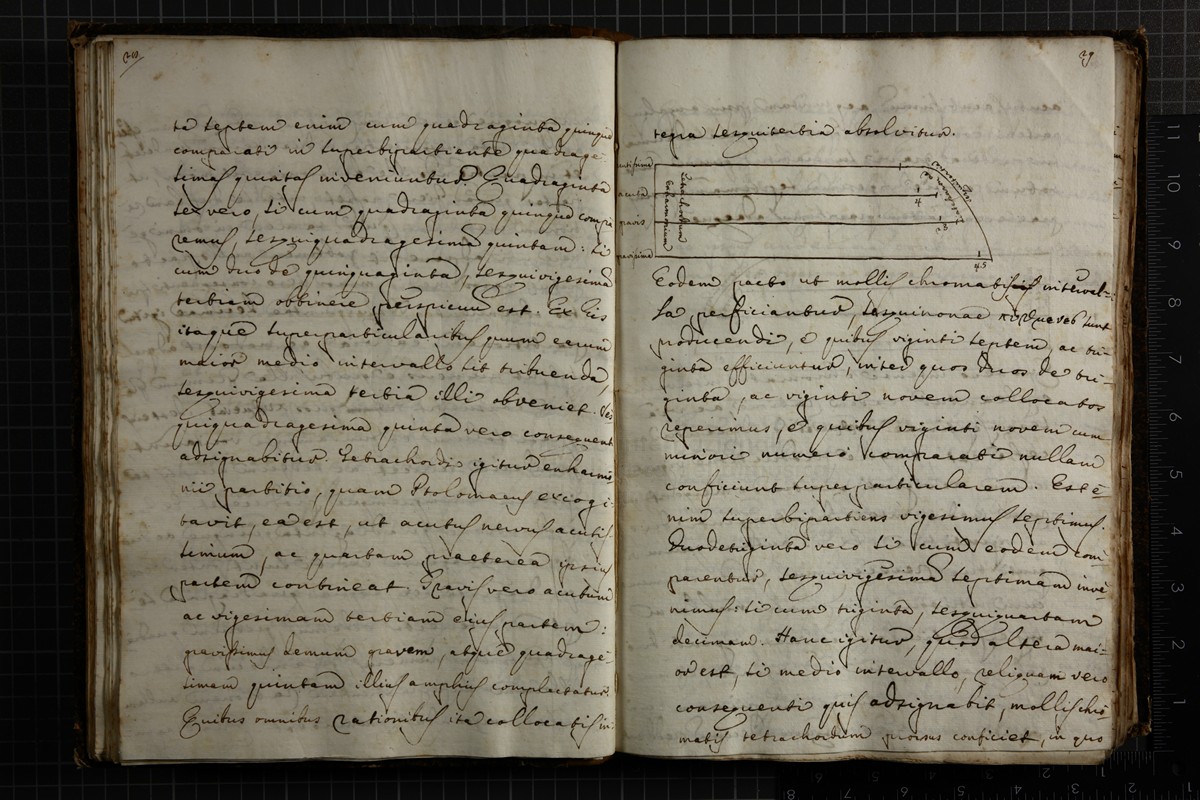 ta septem enim cum quadraginta quinque
comparati in superbipartiente quadrage-
simas quintas inveniuntur. Quadraginta
sex vero, si cum quadraginta quinque compa
remus, sesquiquadragesimam quintam: si
cum duo de quinquaginta, sesquivigesimam
tertiam obtinere perspicuum est. Ex his
itaque superparticularibus quum earum
maior medio intervallo sit tribuenda,
sesquivigesima tertia illi obveniet. Ses
quiquadragesima quinta vero consequenti
adsignabitur. Tetrachordi igitur enharmo
nii partitio, quam Ptolomaeus excogi-
tavit, ea est, ut acutus nervus acutis-
simum, ac quartam praeterea ipsius
partem contineat. Gravis vero acutum
ac vigesimam tertiam eius partem:
gravissimus demum gravem, atque quadrage-
simam quintam illius amplius complectatur.
Quibus omnibus rationibus ita collocatis in-
29
tegra sesquitertia absolvitur.
acuta
gravis
Tetrachordum
Enharmonium
45
Eodem pacto ut mollis chromatis interval-
la perficiantur, sesquinonae sunt
producendi, e quibus viginti septem, ac tri-
ginta efficiuntur, inter quos duos de tri-
ginta, ac viginti novem collocatos
reperimus, e quibus viginti novem cum
minori numero comparati nullam
conficiunt superparticularem. Est e-
nim superbipartiens vigesimas septimas.
Duodetriginta vero si cum eodem com
parentur, sesquivigesimam septimam inve-
nimus: si cum triginta, sesquiquartam
decimam. Hanc igitur, quod altera mai-
or est, si medio intervallo, reliquam vero
consequenti quis adsignabit, mollis chro
matis tetrachordum prorsus conficiet, in quo